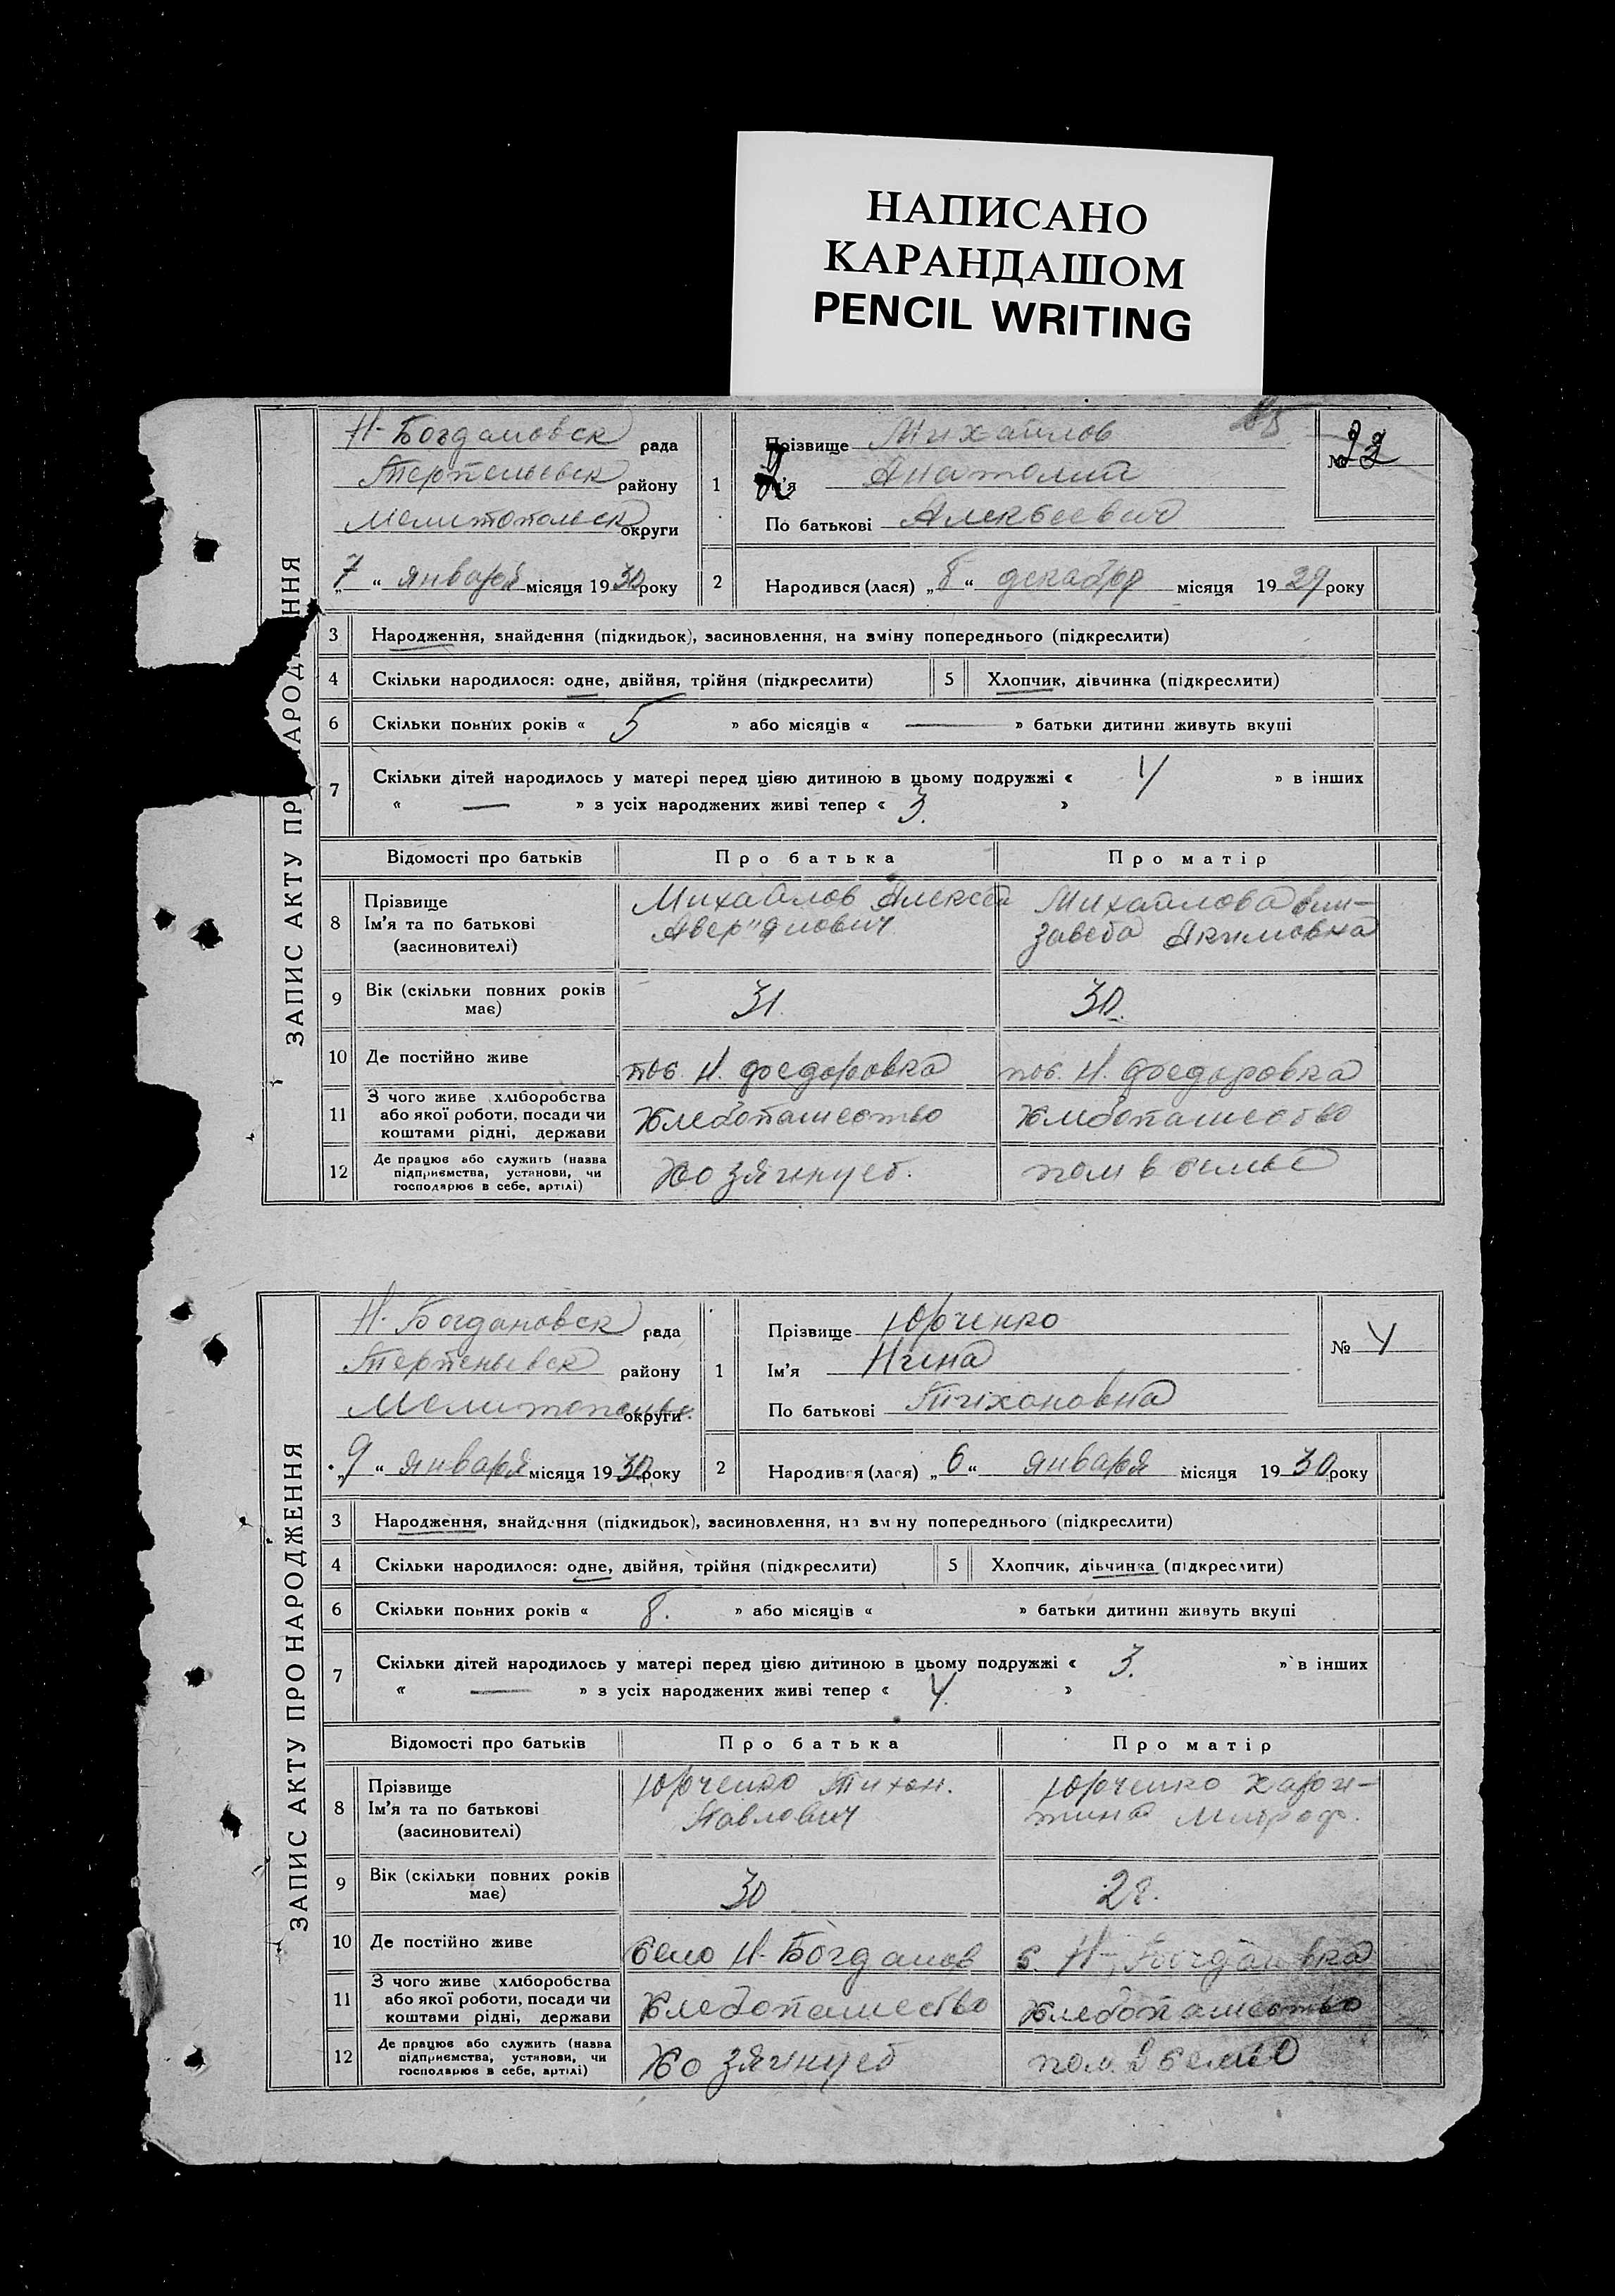 НАПИСАНО
КАРАНДАШОМ
PENCIL WRITING
ЗАПИС АКТУ ПРО НАРОДЖЕННЯ
Н-Богдановск рада
Терпеньевск району
Мелитопольск округи
„7“ января місяця 1930 року
1
Прізвище Михайлов
Ім'я Анатолий
По батькові Алексеевич
№
2 Народився (лася) „8“ декабря місяця 1929 року
3 Народження, знайдення (підкидьок), засиновлення, на зміну попереднього (підкреслити)
4 Скільки народилося: одне, двійня, трійня (підкреслити) 5 Хлопчик, дівчинка (підкреслити)
6 Скільки повних років « 5 » або місяців « — » батьки дитини живуть вкупі
7 Скільки дітей народилось у матері перед цією дитиною в цьому подружжі « 4 » в інших
« — » з усіх народжених живі тепер « 3. »
Відомості про батьків Про батька Про матір
8 Прізвище
Ім'я та по батькові
(засновителі)
Михайлов Алексей
Авер"янович
Михайлова Ели-
завета Акимовна
9 Вік (скільки повних років
має) 31. 30.
10 Де постійно живе пос. Н. Федоровка пос. Н. Федоровка
11 З чого живе (хліборобства
або якої роботи, посади чи
коштами рідні, держави
Хлебопашество Хлебопашество
12 Де працює або служить (назва
підприємства, установи, чи
господарює в себе, артілі)
Хозяйнует. пом в семье
ЗАПИС АКТУ ПРО НАРОДЖЕННЯ
Н-Богдановск рада
Терпеньевск району
Мелитопольс. округи
„9“ января місяця 1930 року
1
Прізвище Юрченко
Ім'я Нина
По батькові Тихоновна
№ 4
2 Народився (лася) „6“ января місяця 1930 року
3 Народження, знайдення (підкидьок), засиновлення, на зміну попереднього (підкреслити)
4 Скільки народилося: одне, двійня, трійня (підкреслити) 5 Хлопчик, дівчинка (підкреслити)
6 Скільки повних років « 8. » або місяців « » батьки дитини живуть вкупі
7 Скільки дітей народилось у матері перед цією дитиною в цьому подружжі « 3. » в інших
« — » з усіх народжених живі тепер « 4. »
Відомості про батьків Про батька Про матір
8 Прізвище
Ім'я та по батькові
(засиновителі)
Юрченко Тихон.
Павлович
Юрченко Хари-
тина Митроф.
9 Вік (скільки повних років
має) 30 28.
10 Де постійно живе село Н-Богданов с. Н-Богдановка
11 З чого живе (хліборобства
або якої роботи, посади чи
коштами рідні, держави
Хлебопашество Хлебопашество
12 Де працює або служить (назва
підприємства, установи, чи
господарює в себе, артілі)
Хозяйнует пом. в семье